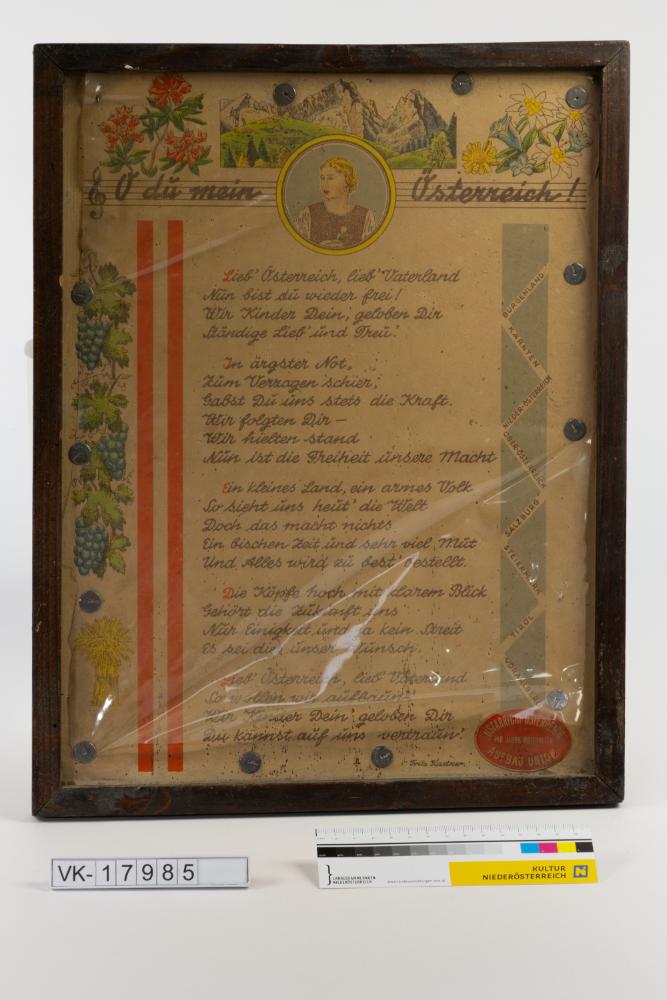 O du mein Österreich!
Lieb' Österreich, lieb' Vaterland
Nun bist du wieder frei!
Wir Kinder Dein, geloben Dir
Ständige Lieb' und Treu'.
In ärgster Not,
Zum Verzagen schier,
Gabst Du uns stets die Kraft.
Wir folgten Dir —
Wir hielten stand
Nun ist die Freiheit unsere Macht
Ein kleines Land, ein armes Volk
So sieht uns heut' die Welt
Doch das macht nichts
Ein bischen Zeit und sehr viel Mut
Und Alles wird zu best' bestellt.
Die Köpfe hoch mit klarem Blick
Gehört die Zukunft uns
Nur Einigkeit und ja kein Streit
Es sei dies unser Wunsch.
Lieb' Österreich, lieb' Vaterland
So wollen wir aufbaun!
Wir Kinder Dein, geloben Dir
Du kannst auf uns vertraun!
Fritz Kastner.
BURGENLAND
KÄRNTEN
NIEDER-ÖSTERREICH
OBER-ÖSTERREICH
SALZBURG
STEIERMARK
TIROL
VORARLBERG
ÖSTERREICH
AUFBAU
VK-17985
LANDESSAMMLUNGEN
NIEDERÖSTERREICH
KULTUR
NIEDERÖSTERREICH